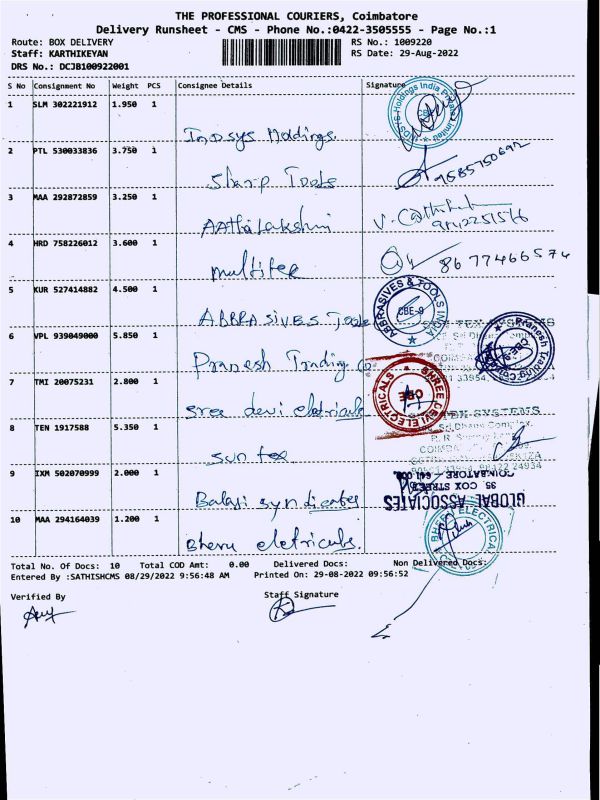 THE PROFESSIONAL COURIERS, Coimbatore
Delivery Runsheet - CMS - Phone No.:0422-3505555 - Page No.:1
Route: BOX DELIVERY
RS No.: 1009220
Staff: KARTHIKEYAN
RS Date: 29-Aug-2022
DRS No.: DCJB100922001
S No Consignment No Weight PCS Consignee Details Signature
1 SLM 302221912 1.950 1
Indsys Holdings.
INDSYS Holdings India Private Limited
CBE
2 PTL 530033836 3.750 1
Sharp Tools
9585750692
3 MAA 292872859 3.250 1
Aathilakshmi
9842251566
4 HRD 758226012 3.600 1
multitec
8677466574
5 KUR 527414882 4.500 1
ABBRASIVES Tools
ABRASIVES & TOOLS INDIA
CBE-9
6 VPL 939049000 5.850 1
Pranesh Trading Co
Pranesh Trading Co
CBE-9
7 TMI 20075231 2.800 1
sree devi eletricals
SHREE DEVI ELECTRICALS
CBE
8 TEN 1917588 5.350 1
sun tex
9 IXM 502070999 2.000 1
Balaji syndicates
GLOBAL ASSOCIATES
35, COX STREET
COIMBATORE - 641 001
10 MAA 294164039 1.200 1
Bheru eletricals.
BHERU ELECTRICAL
Total No. Of Docs: 10 Total COD Amt: 0.00 Delivered Docs: Non Delivered Docs:
Entered By :SATHISHCMS 08/29/2022 9:56:48 AM Printed On: 29-08-2022 09:56:52
Verified By
Staff Signature